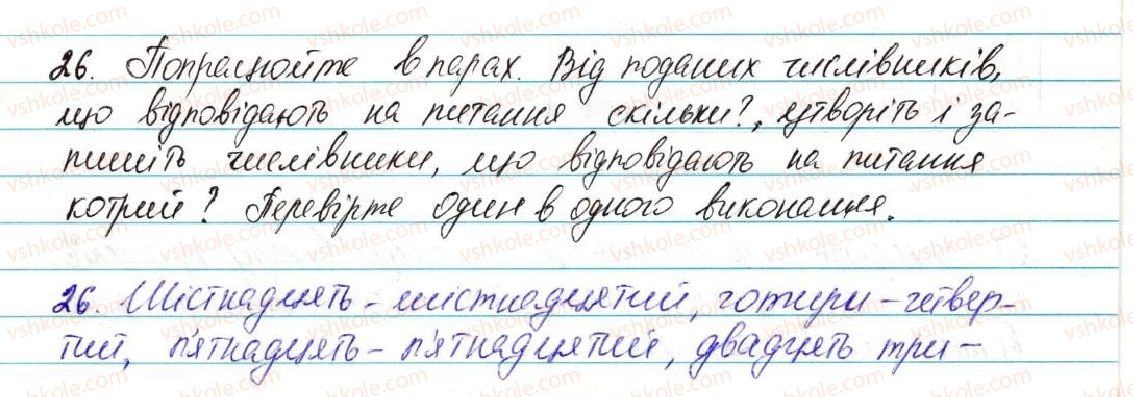 26. Попрацюйте в парах. Від поданих числівників,
що відповідають на питання скільки?, утворіть і за-
пишіть числівники, що відповідають на питання
котрий? Перевірте один в одного виконання.
26. Шістнадцять – шістнадцятий, чотири – четвер-
тий, п'ятнадцять – п'ятнадцятий, двадцять три –